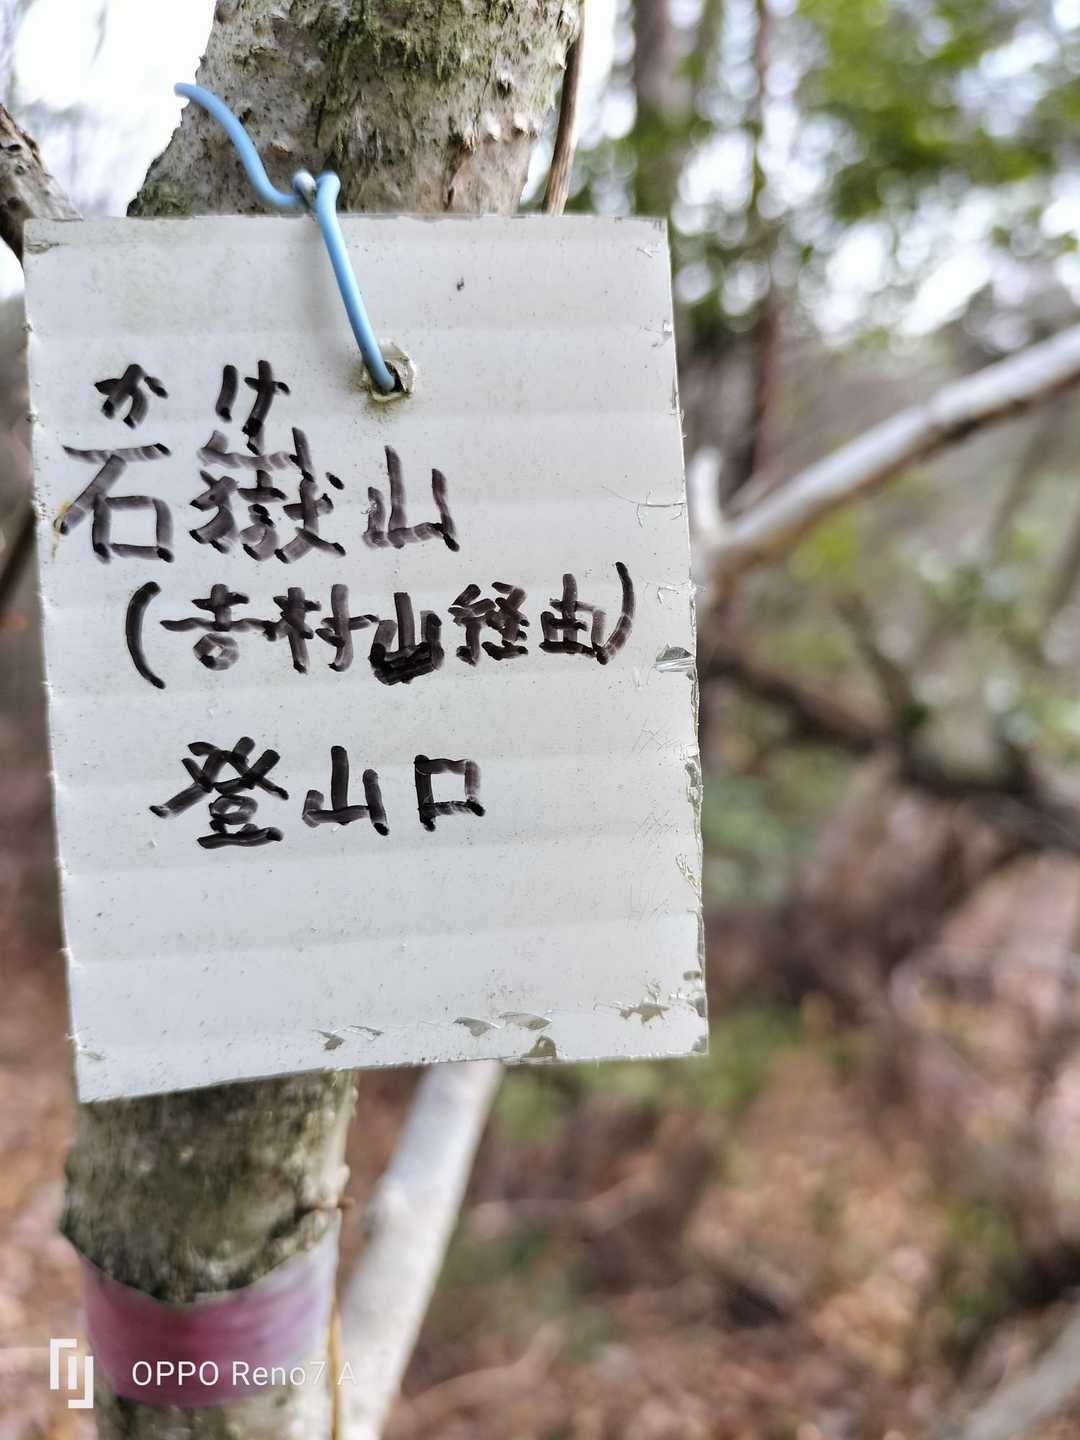 かけ
石嶽山
(吉村山経由)
登山口
OPPO Reno7 A